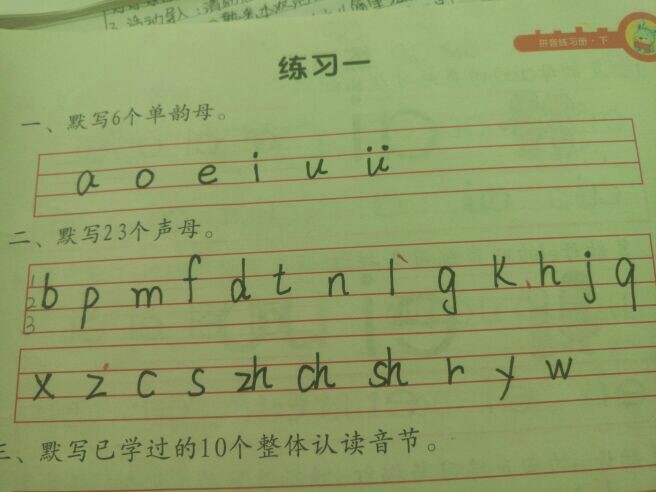 拼音练习册·下
练习一
一、默写6个单韵母。
a o e i u ü
二、默写23个声母。
1
2
3
b p m f d t n l g k h j q
x z c s zh ch sh r y w
三、默写已学过的10个整体认读音节。